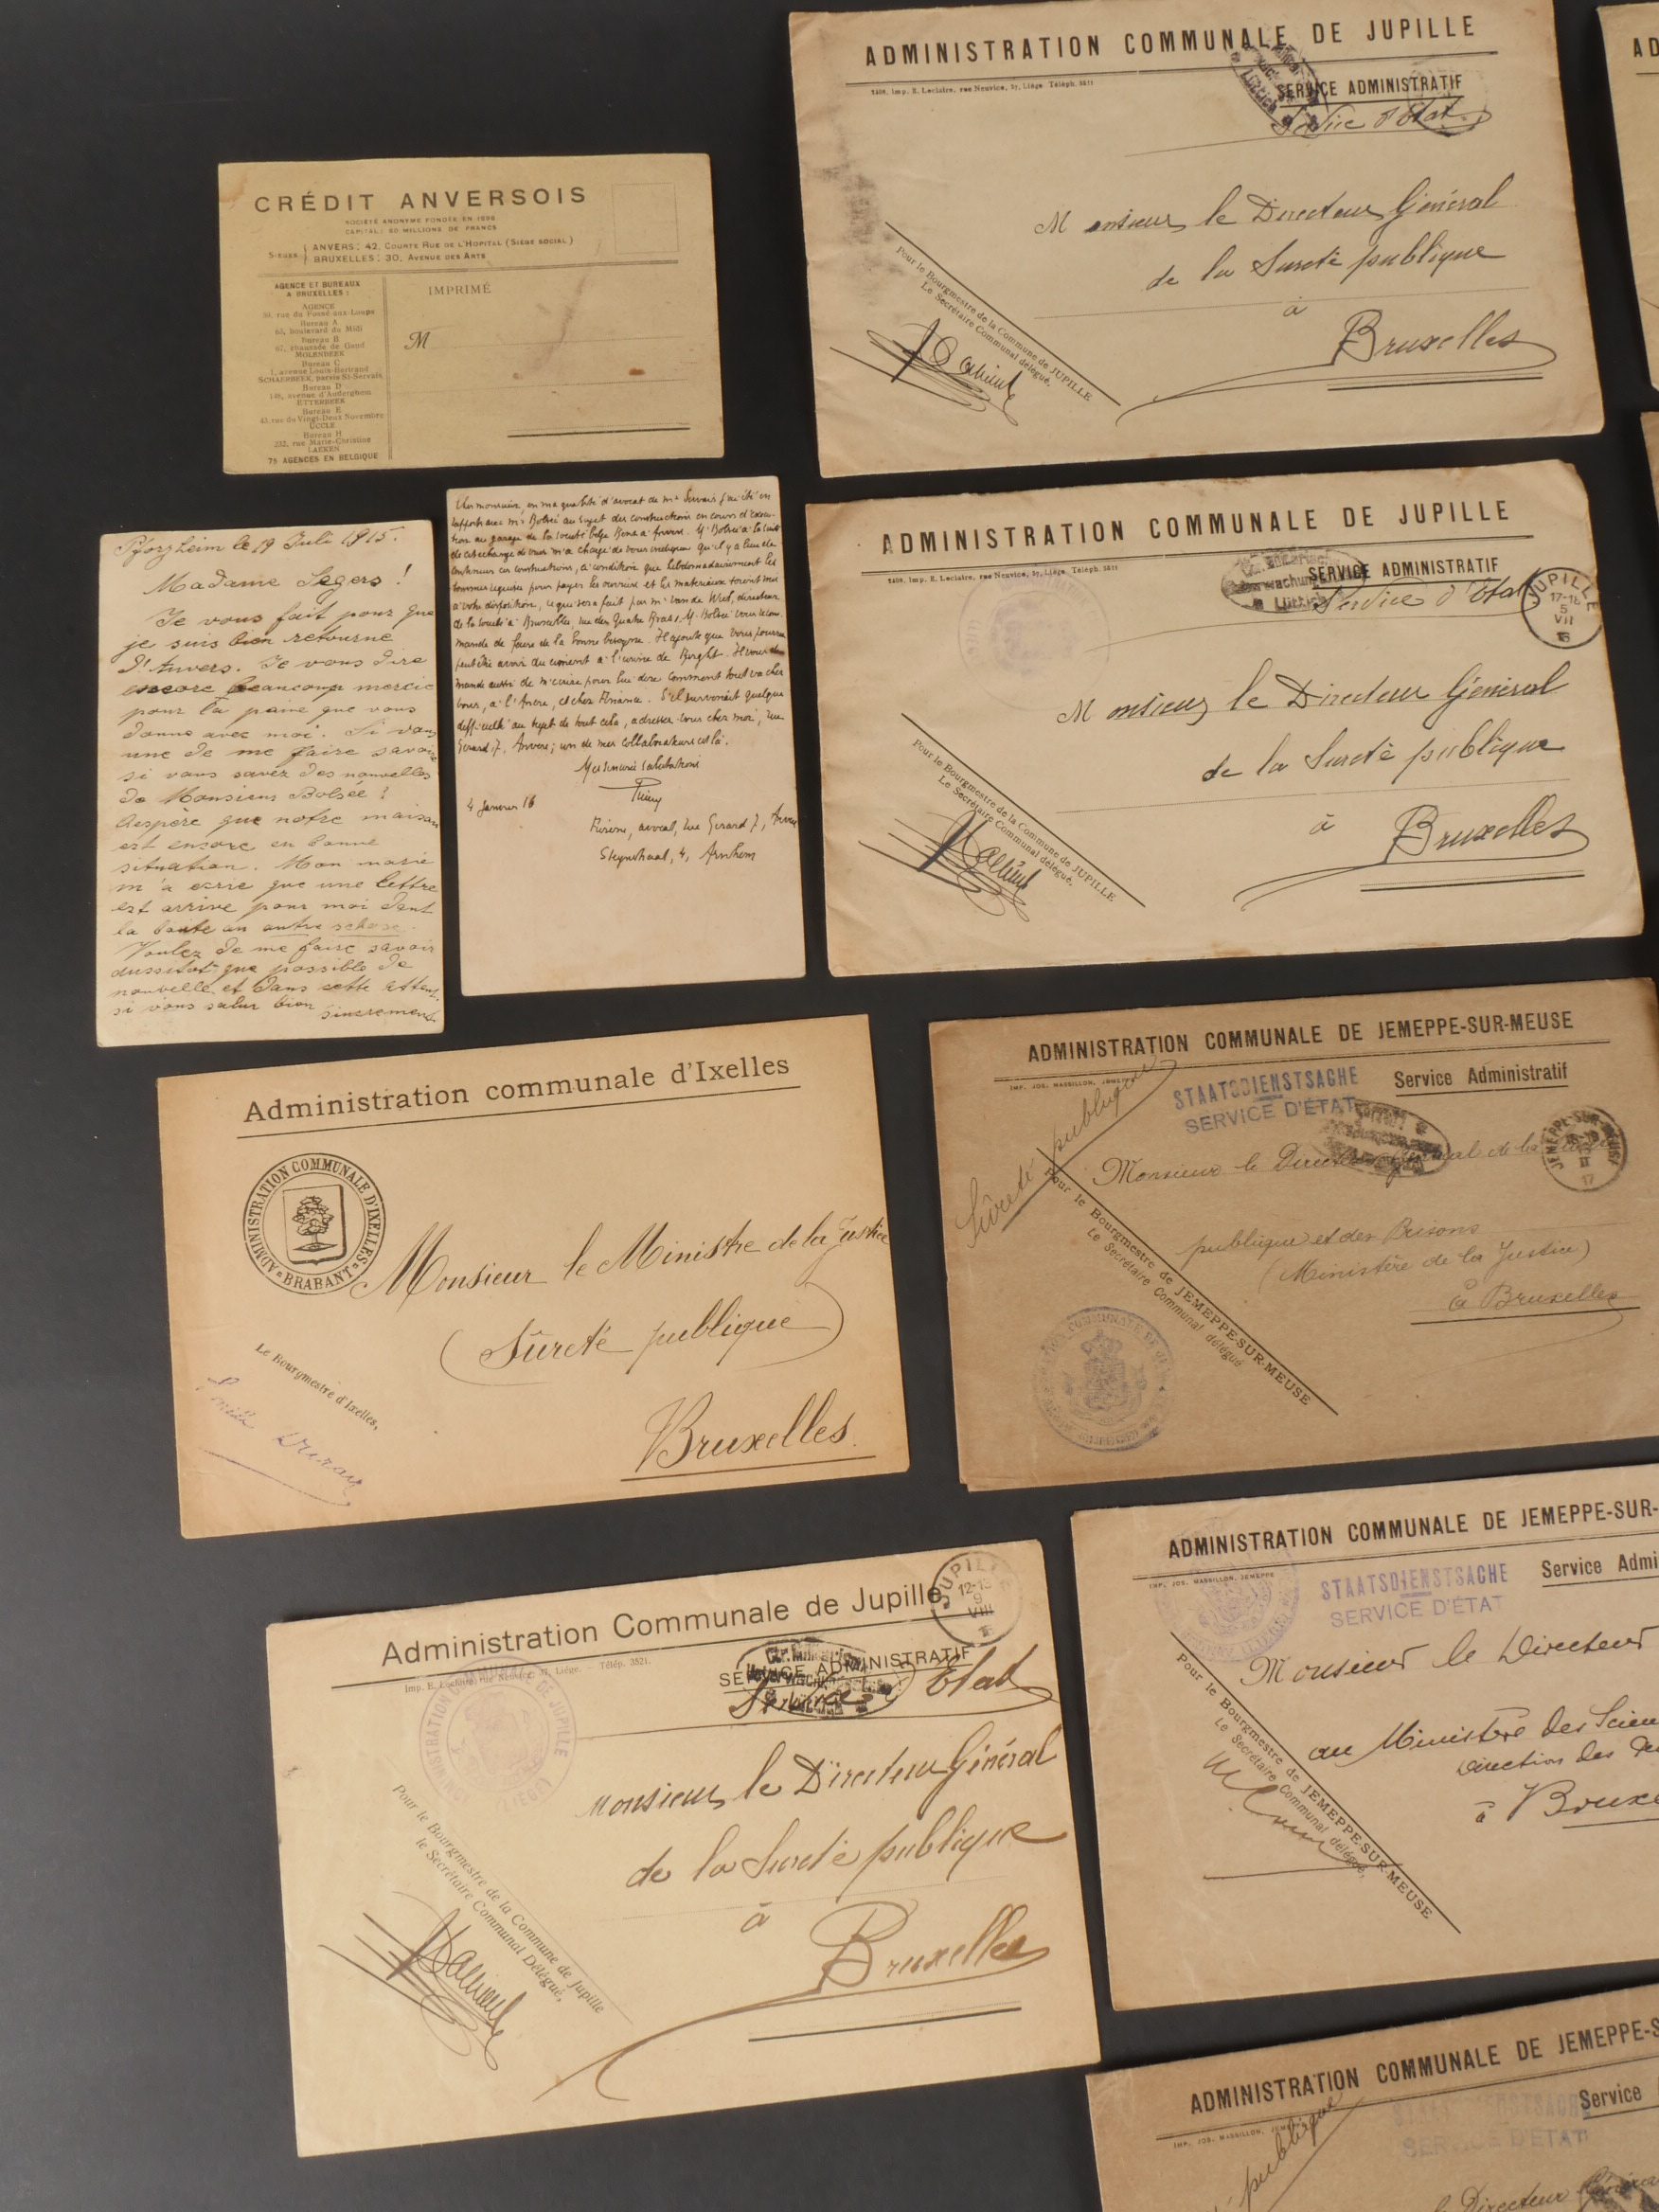 CRÉDIT ANVERSOIS
SOCIÉTÉ ANONYME FONDÉE EN 1898
CAPITAL: 60 MILLIONS DE FRANCS
SIÈGES
ANVERS: 42, COURTE RUE DE L'HOPITAL (SIÈGE SOCIAL)
BRUXELLES: 30, AVENUE DES ARTS
AGENCE ET BUREAUX
A BRUXELLES:
AGENCE
rue du Fossé-aux-Loups
Bureau A
boulevard du Midi
Bureau B
chaussée de Gand
MOLENBEEK
Bureau C
1, avenue Louis-Bertrand
SCHAERBEEK, parvis St-Servais
Bureau D
avenue d'Auderghem
ETTERBEEK
Bureau E
rue du Vingt-Deux Novembre
UCCLE
Bureau H
232, rue Marie-Christine
LAEKEN
75 AGENCES EN BELGIQUE
IMPRIMÉ
M
Pforzheim le 19 Juli 1915.
Madame Segers!
Je vous fait pour que
je suis bien retourne
d'Anvers. Je vous dire
encore beaucoup mercie
pour la paine que vous
donne avec moi. Si vous
une de me faire savoir
si vous savez des nouvelles
de Monsieur Bolsée?
Aespère que notre maison
est encore en bonne
situation. Mon marie
m'a ecrie que une lettre
est arrive pour moi dant
la boite an autre
Voulez de me faire savoir
aussitot que possible de
nouvelle et dans cette
si vous salur bien
sincerement
Cher monsieur, en ma qualité d'avocat de Mr Servais j'ai été en
rapport avec Mr Bolsée au sujet des constructions en cours d'exécu-
tion au garage de la société belge à Anvers. M. Bolsée à la suite
de cet échange de vues m'a chargé de vous indiquer qu'il y a lieu de
continuer ces constructions, à condition que hebdomadairement les
sommes requises pour payer les ouvriers et les matériaux soient mis
à votre disposition, ce qui sera fait par Mr directeur
de la société à Bruxelles, rue des Quatre Bras. M. Bolsée vous recom-
mande de faire de la bonne besogne. Il ajoute que vous pourrez
peut être avoir du ciment à l'usine de Burght. Il vous de-
mande aussi de m'écrire pour lui dire comment tout va chez
vous, à l'Ancre, et chez S'il survenait quelque
difficulté au sujet de tout cela, adressez-vous chez moi, rue
Gérard 7, Anvers; un de mes collaborateurs est là.
Mes sincères salutations
4 Janvier 16
avocat, rue Gerard 7, Anvers
4, Arnhem
ADMINISTRATION COMMUNALE DE JUPILLE
Imp. E. Leclaire, rue Neuvice, 37, Liége Téléph. 3511
SERVICE ADMINISTRATIF
Service d'Etat
Lüttich
Monsieur le Directeur Général
de la Sureté publique
à
Bruxelles
Pour le Bourgmestre de la Commune de JUPILLE
Le Secrétaire Communal délégué,
ADMINISTRATION COMMUNALE DE JUPILLE
Imp. E. Leclaire, rue Neuvice, 37, Liége Téléph. 3511
SERVICE ADMINISTRATIF
Service d'Etat
Lüttich
JUPILLE
5
VII
Monsieur le Directeur Général
de la Sureté publique
à
Bruxelles
Pour le Bourgmestre de la Commune de JUPILLE
Le Secrétaire Communal délégué,
Administration communale d'Ixelles
ADMINISTRATION COMMUNALE D'IXELLES
BRABANT
Monsieur le Ministre de la Justice
(Sûreté publique)
Bruxelles.
Le Bourgmestre d'Ixelles,
ADMINISTRATION COMMUNALE DE JEMEPPE-SUR-MEUSE
IMP. JOS. MASSILLON, JEMEPPE
STAATSDIENSTSACHE
SERVICE D'ÉTAT
Service Administratif
JEMEPPE-SUR-MEUSE
II
17
Sûreté publique
Monsieur le Directeur Général de la Sûreté
publique et des Prisons
(Ministère de la Justice)
à Bruxelles
Pour le Bourgmestre de JEMEPPE-SUR-MEUSE
Le Secrétaire Communal délégué
Administration Communale de Jupille
Imp. E. Leclaire, rue Neuvice, 37, Liége. Télép. 3521.
JUPILLE
9
VIII
SERVICE ADMINISTRATIF
Service Etat
ADMINISTRATION COMMUNALE DE JUPILLE
LIÉGE
Monsieur le Directeur Général
de la Sureté publique
à
Bruxelles
Pour le Bourgmestre de la Commune de Jupille
le Secrétaire Communal Délégué,
ADMINISTRATION COMMUNALE DE JEMEPPE-SUR-
IMP. JOS. MASSILLON, JEMEPPE
STAATSDIENSTSACHE
SERVICE D'ÉTAT
Service Admi
Monsieur le Directeur
au Ministère des Scien
Direction des
à Bruxe
Pour le Bourgmestre de JEMEPPE-SUR-MEUSE
Le Secrétaire Communal délégué,
ADMINISTRATION COMMUNALE DE JEMEPPE-S
IMP. JOS. MASSILLON, JEMEPPE
Service
SERVICE D'ÉTAT
publique
Directeur Général
AD